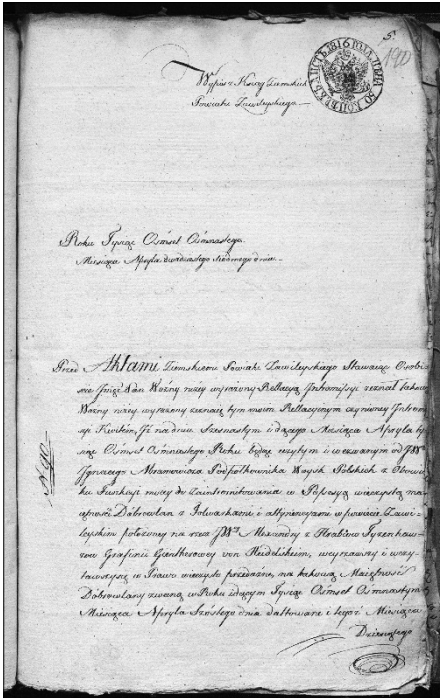 5.
190
ЛИСТЪ 1816 ГОДА ЦѢНА 50 КОПѢЕКЪ
Wypis z Xiąg Ziemskich
Powiatu Zawileyskiego
Roku Tysiąc Osmset Osmnastego
Miesiąca Apryla dwudziestego siódmego dnia
Przed Aktami Ziemskiemi Powiatu Zawileyskiego Stawaiąc Osobi-
ście Jan Woźny niżey wyrażony Rellacyą Intromissyi zeznał takową
Woźny niżey wyrażony zeznaię tym moim Rellacyinym czynioney Intromi-
ssyi Kwitem, Iż na dniu Szesnastym idącego Miesiąca Apryla ty-
siąc Osmset Osmnastego Roku będąc użytym i wezwanym od JW
Ignacego Abramowicza Podpółkownika Woysk Polskich z Obowią-
zku Funkcyi moiey do Zaintromitowania w Possessyą wieczystą ma-
iętności Dobrowlan z Folwarkami i attynencyami w powiecie Zawi-
leyskim położoney na rzecz JW Alexandry z Hrabiow Tyzenhau-
zow Grafini Güntherowey von Hildelsheim, wyrażoney i wczy-
tawszy się w Prawo wieczysto przedażne, na takową Maiętność
Dobrowlany zwaną w Roku idącym Tysiąc Osmset Osmnastym
Miesiąca Apryla Szóstego dnia dattowane i tegoż Miesiąca
Dziesiątego